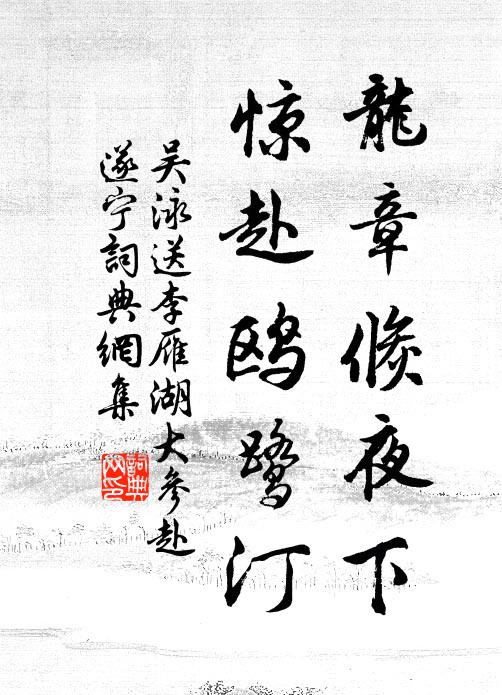 龍章倐夜下
惊赴鸥鹭汀
吴泳送李雁湖大参赴
遂宁詞典網集
詞典網印